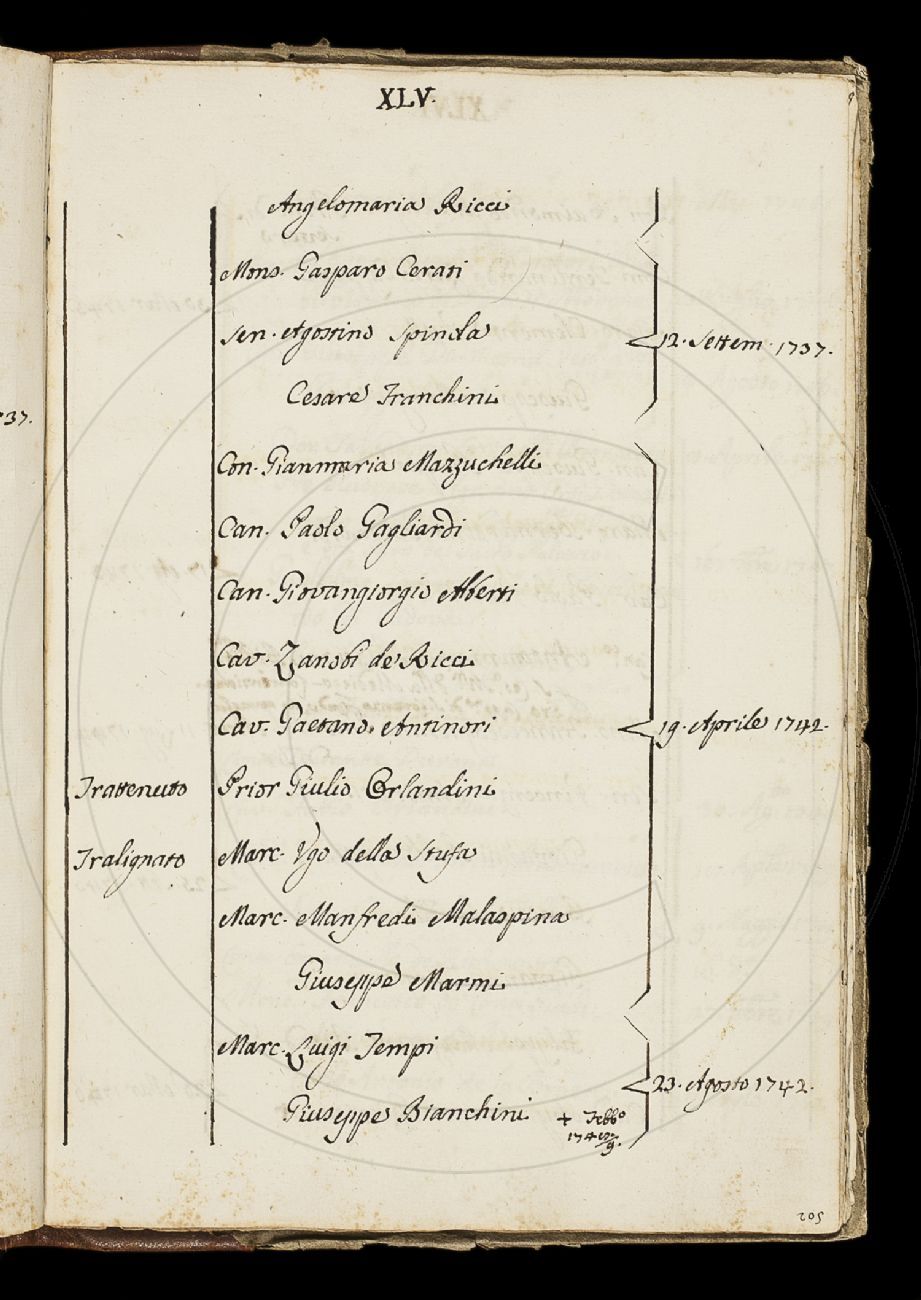 XLV.
Angelomaria Ricci
Mons. Gasparo Cerati
Sen. Agostino Spinola
12. Settem. 1737.
Cesare Franchini
37.
Con. Gianmaria Mazzuchelli
Can. Paolo Gagliardi
Can. Giovangiorgio Alberti
Cav. Zanobi de' Ricci
Cav. Gaetano Antinori
19. Aprile 1742.
Trattenuto Prior Giulio Orlandini
Tralignato Marc. Ugo della Stufa
Marc. Manfredi Malaspina
Giuseppe Marmi
Marc. Luigi Tempi
23. Agosto 1742.
Giuseppe Bianchini + Febb.o
205